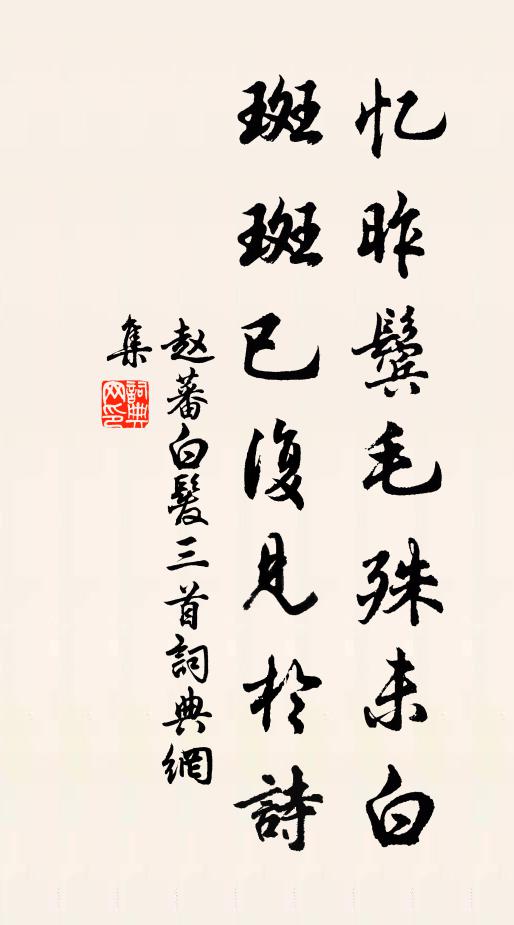 忆昨鬓毛殊未白
斑斑已復見於詩
赵蕃白髮三首詞典網
集
詞典網印